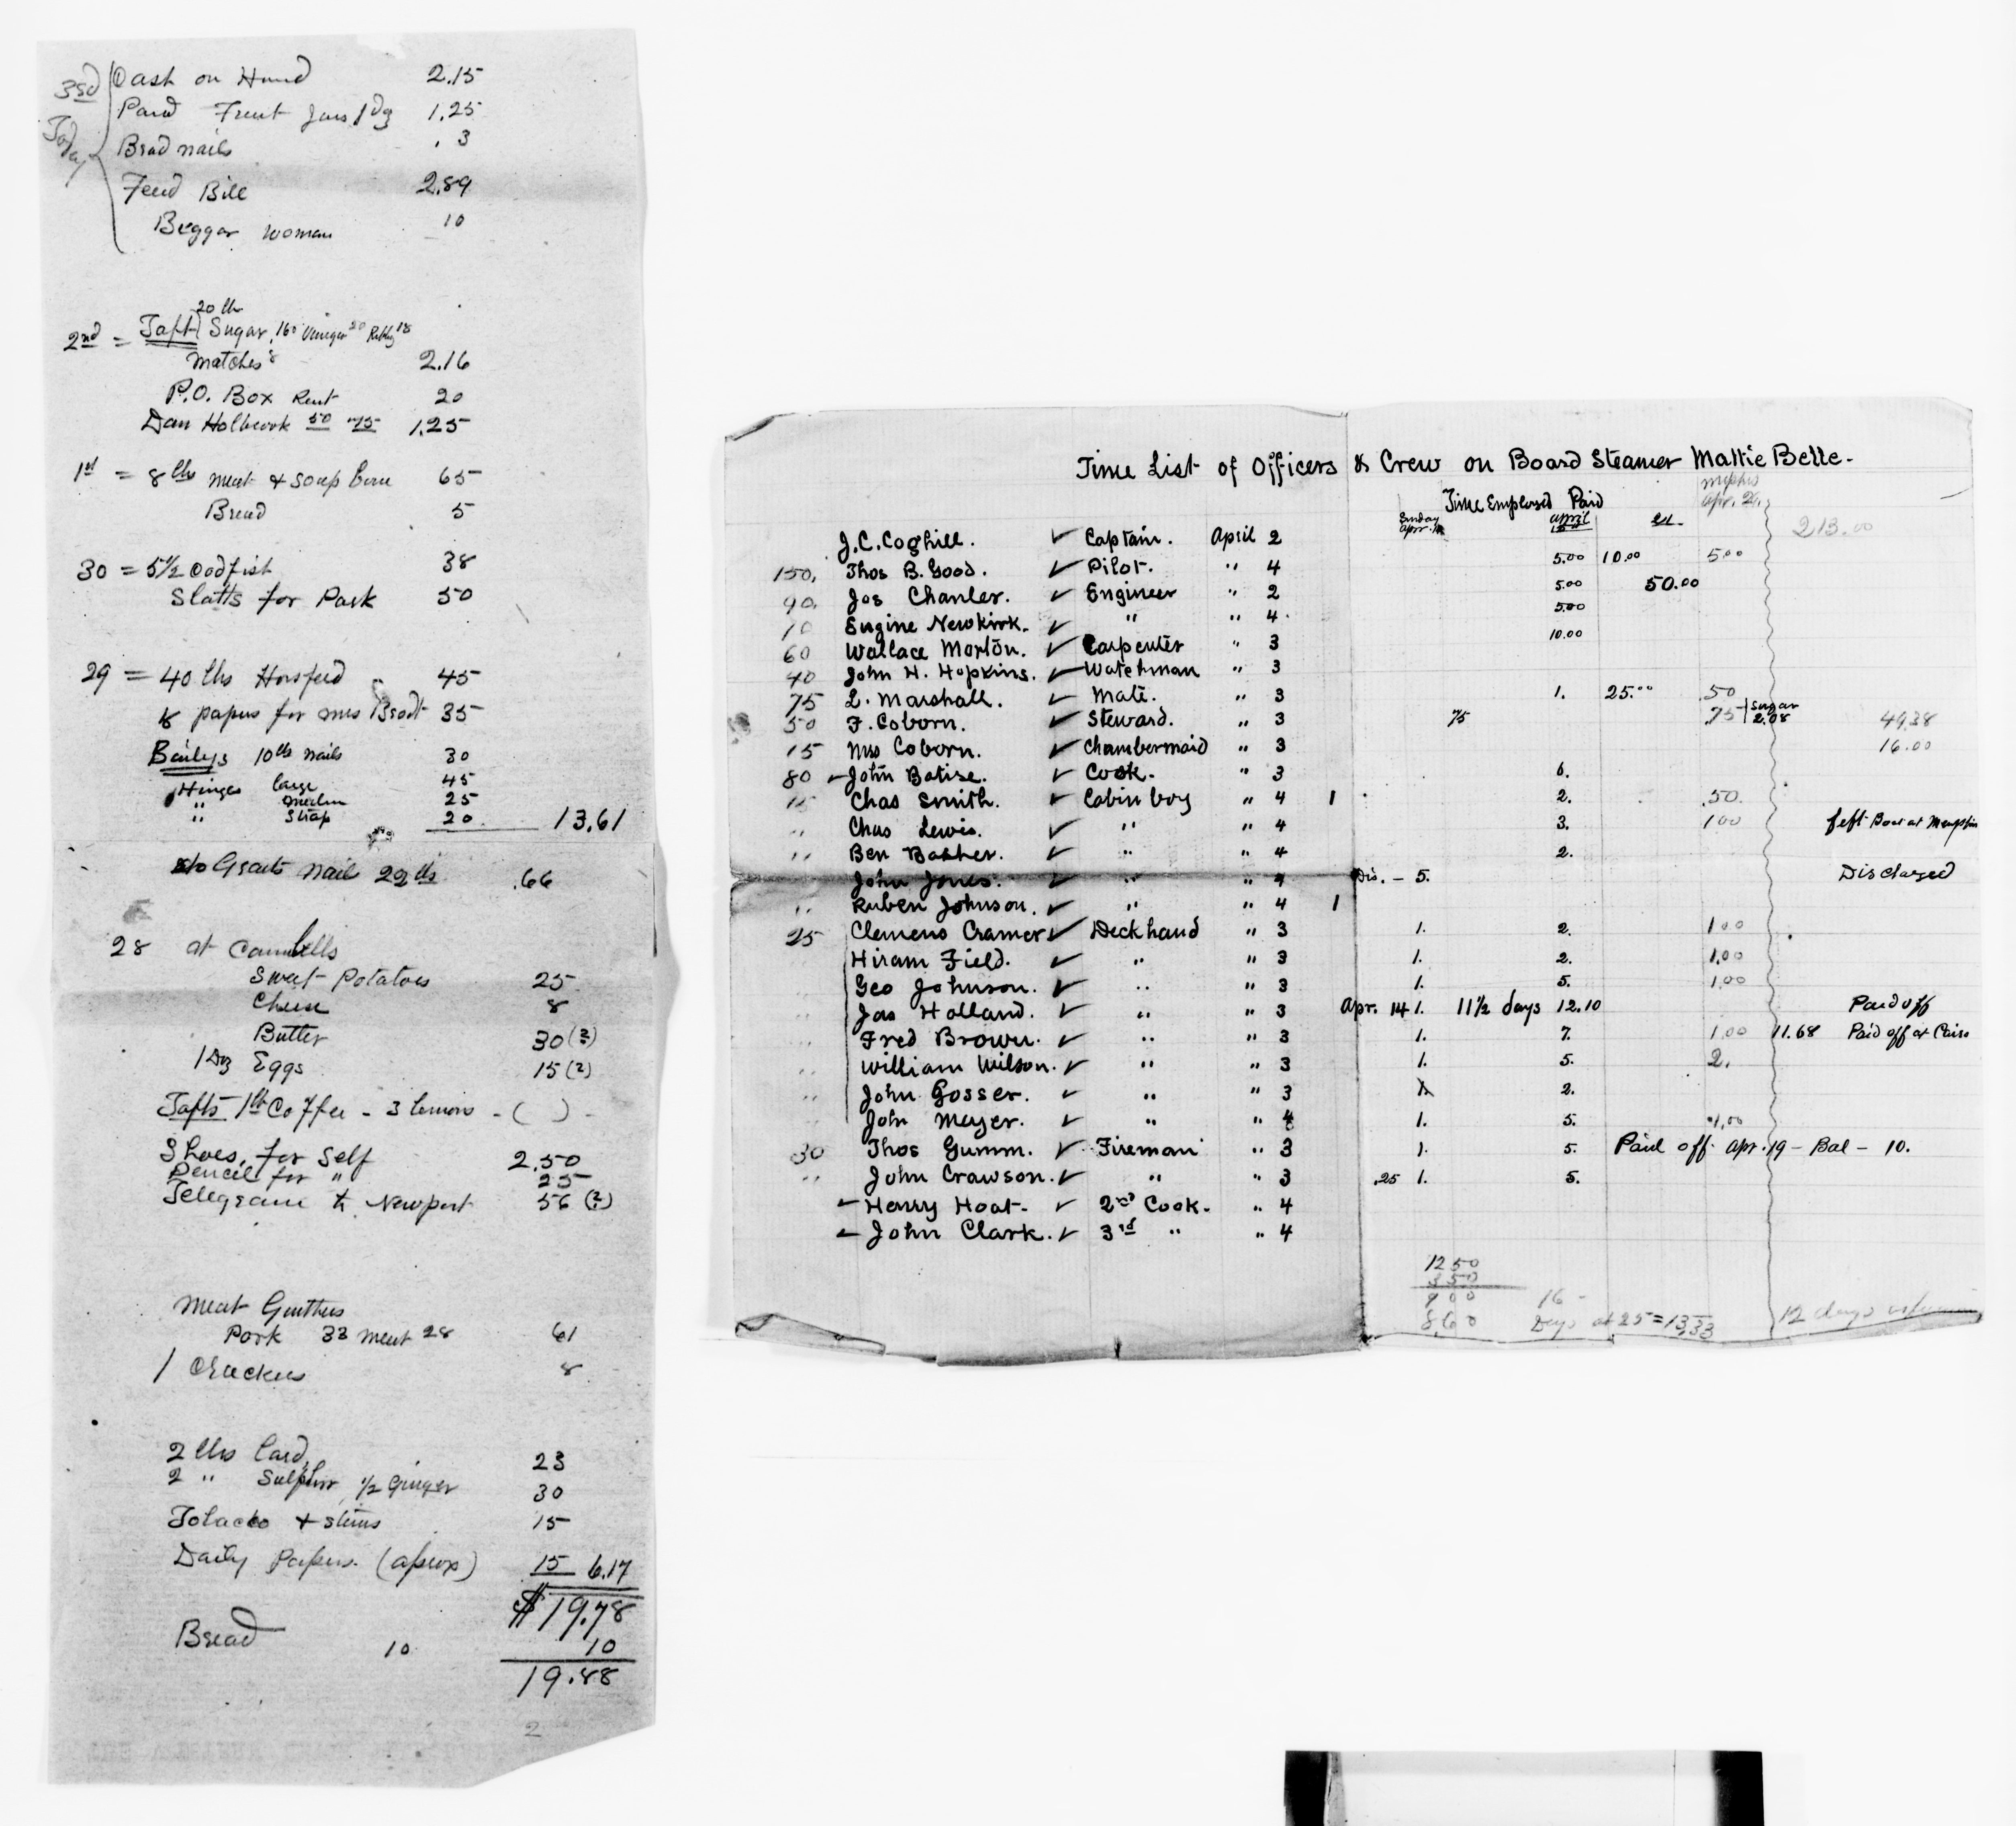 3rd Cash on Hand 2.15
Today
Paid Fruit Jars 1 Dz 1.25
Brad nails . 3
Feed Bill 2.89
Beggar woman 10
20 lbs
2nd = Taft Sugar, 160 Vinegar 20 18
Matches 8 2.16
P.O. Box Rent 20
Dan Holbrook 50 75 1.25
1st = 8 lbs meat & soup bone 65
Bread 5
30 = 5 1/2 Codfish 38
Slatts for Park 50
29 = 40 lbs Horsfeed 45
papers for Mrs 35
Bailys 10 lbs nails 30
Hinges large 45
" 25
" Strap 20 13.61
Grants nail 22 lbs .66
28 at
Sweet Potatoes 25
Cheese 8
Butter 30 (?)
1 Dz Eggs 15 (?)
Tafts 1 lb Coffee - 3 lemons - ( ) -
Shoes for Self 2.50
Pencil for " 25
Telegram to Newport 56 (?)
Meat Gunthers
Pork 33 meat 28 61
1 Crackers 8
2 lbs Lard, 23
2 " Sulphur 1/2 Ginger 30
Tobacko & stems 15
Daily Papers. (aprox) 15 6.17
$19.78
Bread 10 10
19.88
2
Time List of Officers & Crew on Board Steamer Mattie Belle.
Time Employed Paid
Sunday April Apr. 2
213.00
J.C. Coghill. ✓ Captain. April 2
150. Thos B. Good. ✓ Pilot. " 4 5.00 10.00 5.00
90. Jos Chanler. ✓ Engineer " 2 5.00 50.00
10 Eugine Newkirk. ✓ " " 4. 5.00
60 Wallace Morton. ✓ Carpenter " 3 10.00
40 John H. Hopkins. ✓ Watchman " 3
75 L. Marshall. ✓ Mate. " 3 1. 25.00 50
50 F. Coborn. ✓ Steward. " 3 75 75 Sugar 2.08 49.38
15 Mrs Coborn. ✓ Chambermaid " 3 16.00
80 John Batise. ✓ Cook. " 3 6.
15 Chas Smith. ✓ Cabin boy " 4 1 2. .50
" Chas Lewis. ✓ " " 4 3. 100 left Boat at Memphis
" Ben Basher. ✓ " " 4 2.
John Jones. ✓ " " 4 Dis. - 5. Discharged
" Ruben Johnson. ✓ " " 4 1
25 Clemens Cramer ✓ Deckhand " 3 1. 2. 1.00
Hiram Field. ✓ " " 3 1. 2. 1.00
Geo Johnson. ✓ " " 3 1. 5. 1.00
Jas Holland. ✓ " " 3 Apr. 14 1. 11 1/2 days 12.10 Paid off
Fred Brown. ✓ " " 3 1. 7. 1.00 11.68 Paid off at Cairo
William Wilson. ✓ " " 3 1. 5. 2.
John Gosser. ✓ " " 3 2.
John Meyer. ✓ " " 4 1. 5. 1.00
30 Thos Gumm. ✓ Fireman " 3 1. 5. Paid off Apr. 19 - Bal - 10.
" John Crawson. ✓ " " 3 .25 1. 5.
Henry Hoat. ✓ 2nd Cook. " 4
John Clark. ✓ 3rd " " 4
1250
350
900 16 -
860 Days at 25 = 13.33 12 days